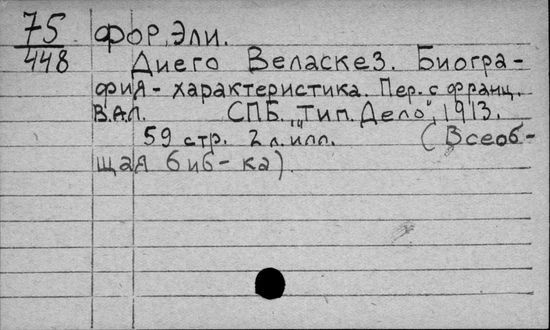 75 фор, Эли.
448 Диего Веласкез. Биогра-
фия - характеристика. Пер. с франц.
В.А.Л. СПБ. „Тип. Дело", 1913.
59 стр. 2 л. илл. (Всеоб-
щая биб-ка).